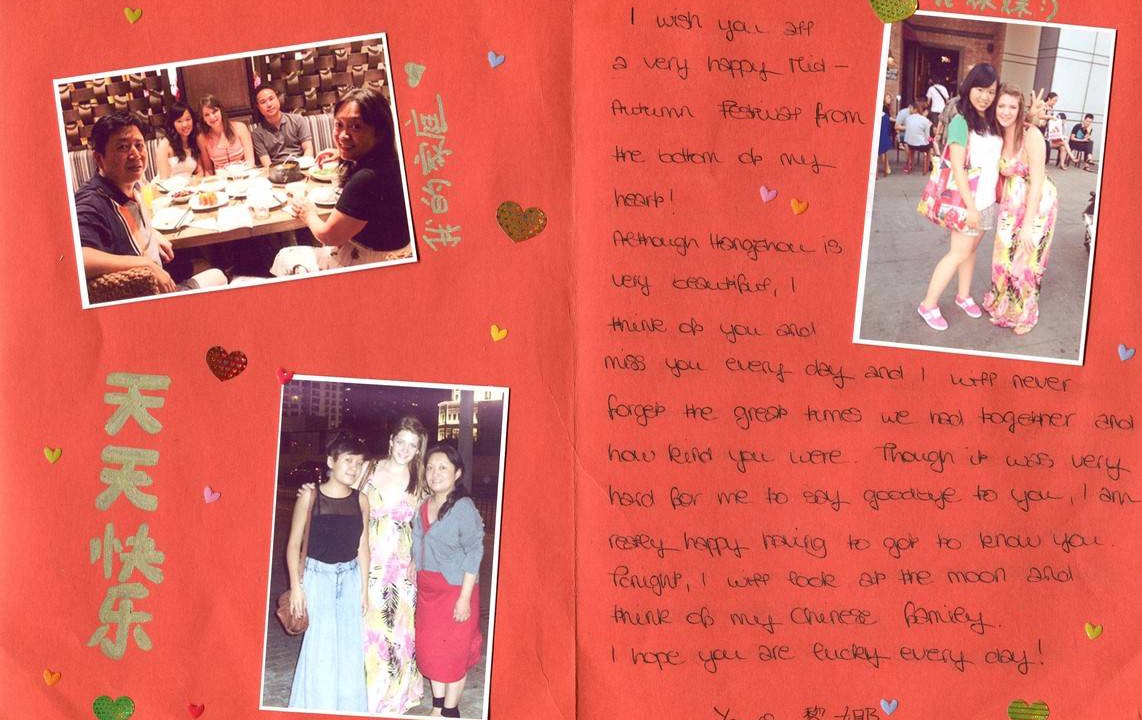 我的
天天快乐
I wish you all
a very happy Mid-
Autumn Festival from
the bottom of my
heart!
Although Hangzhou is
very beautiful, I
think of you and
miss you every day and I will never
forget the great times we had together and
how kind you were. Though it was very
hard for me to say goodbye to you, I am
really happy having to got to know you.
Tonight, I will look at the moon and
think of my Chinese family.
I hope you are lucky every day!